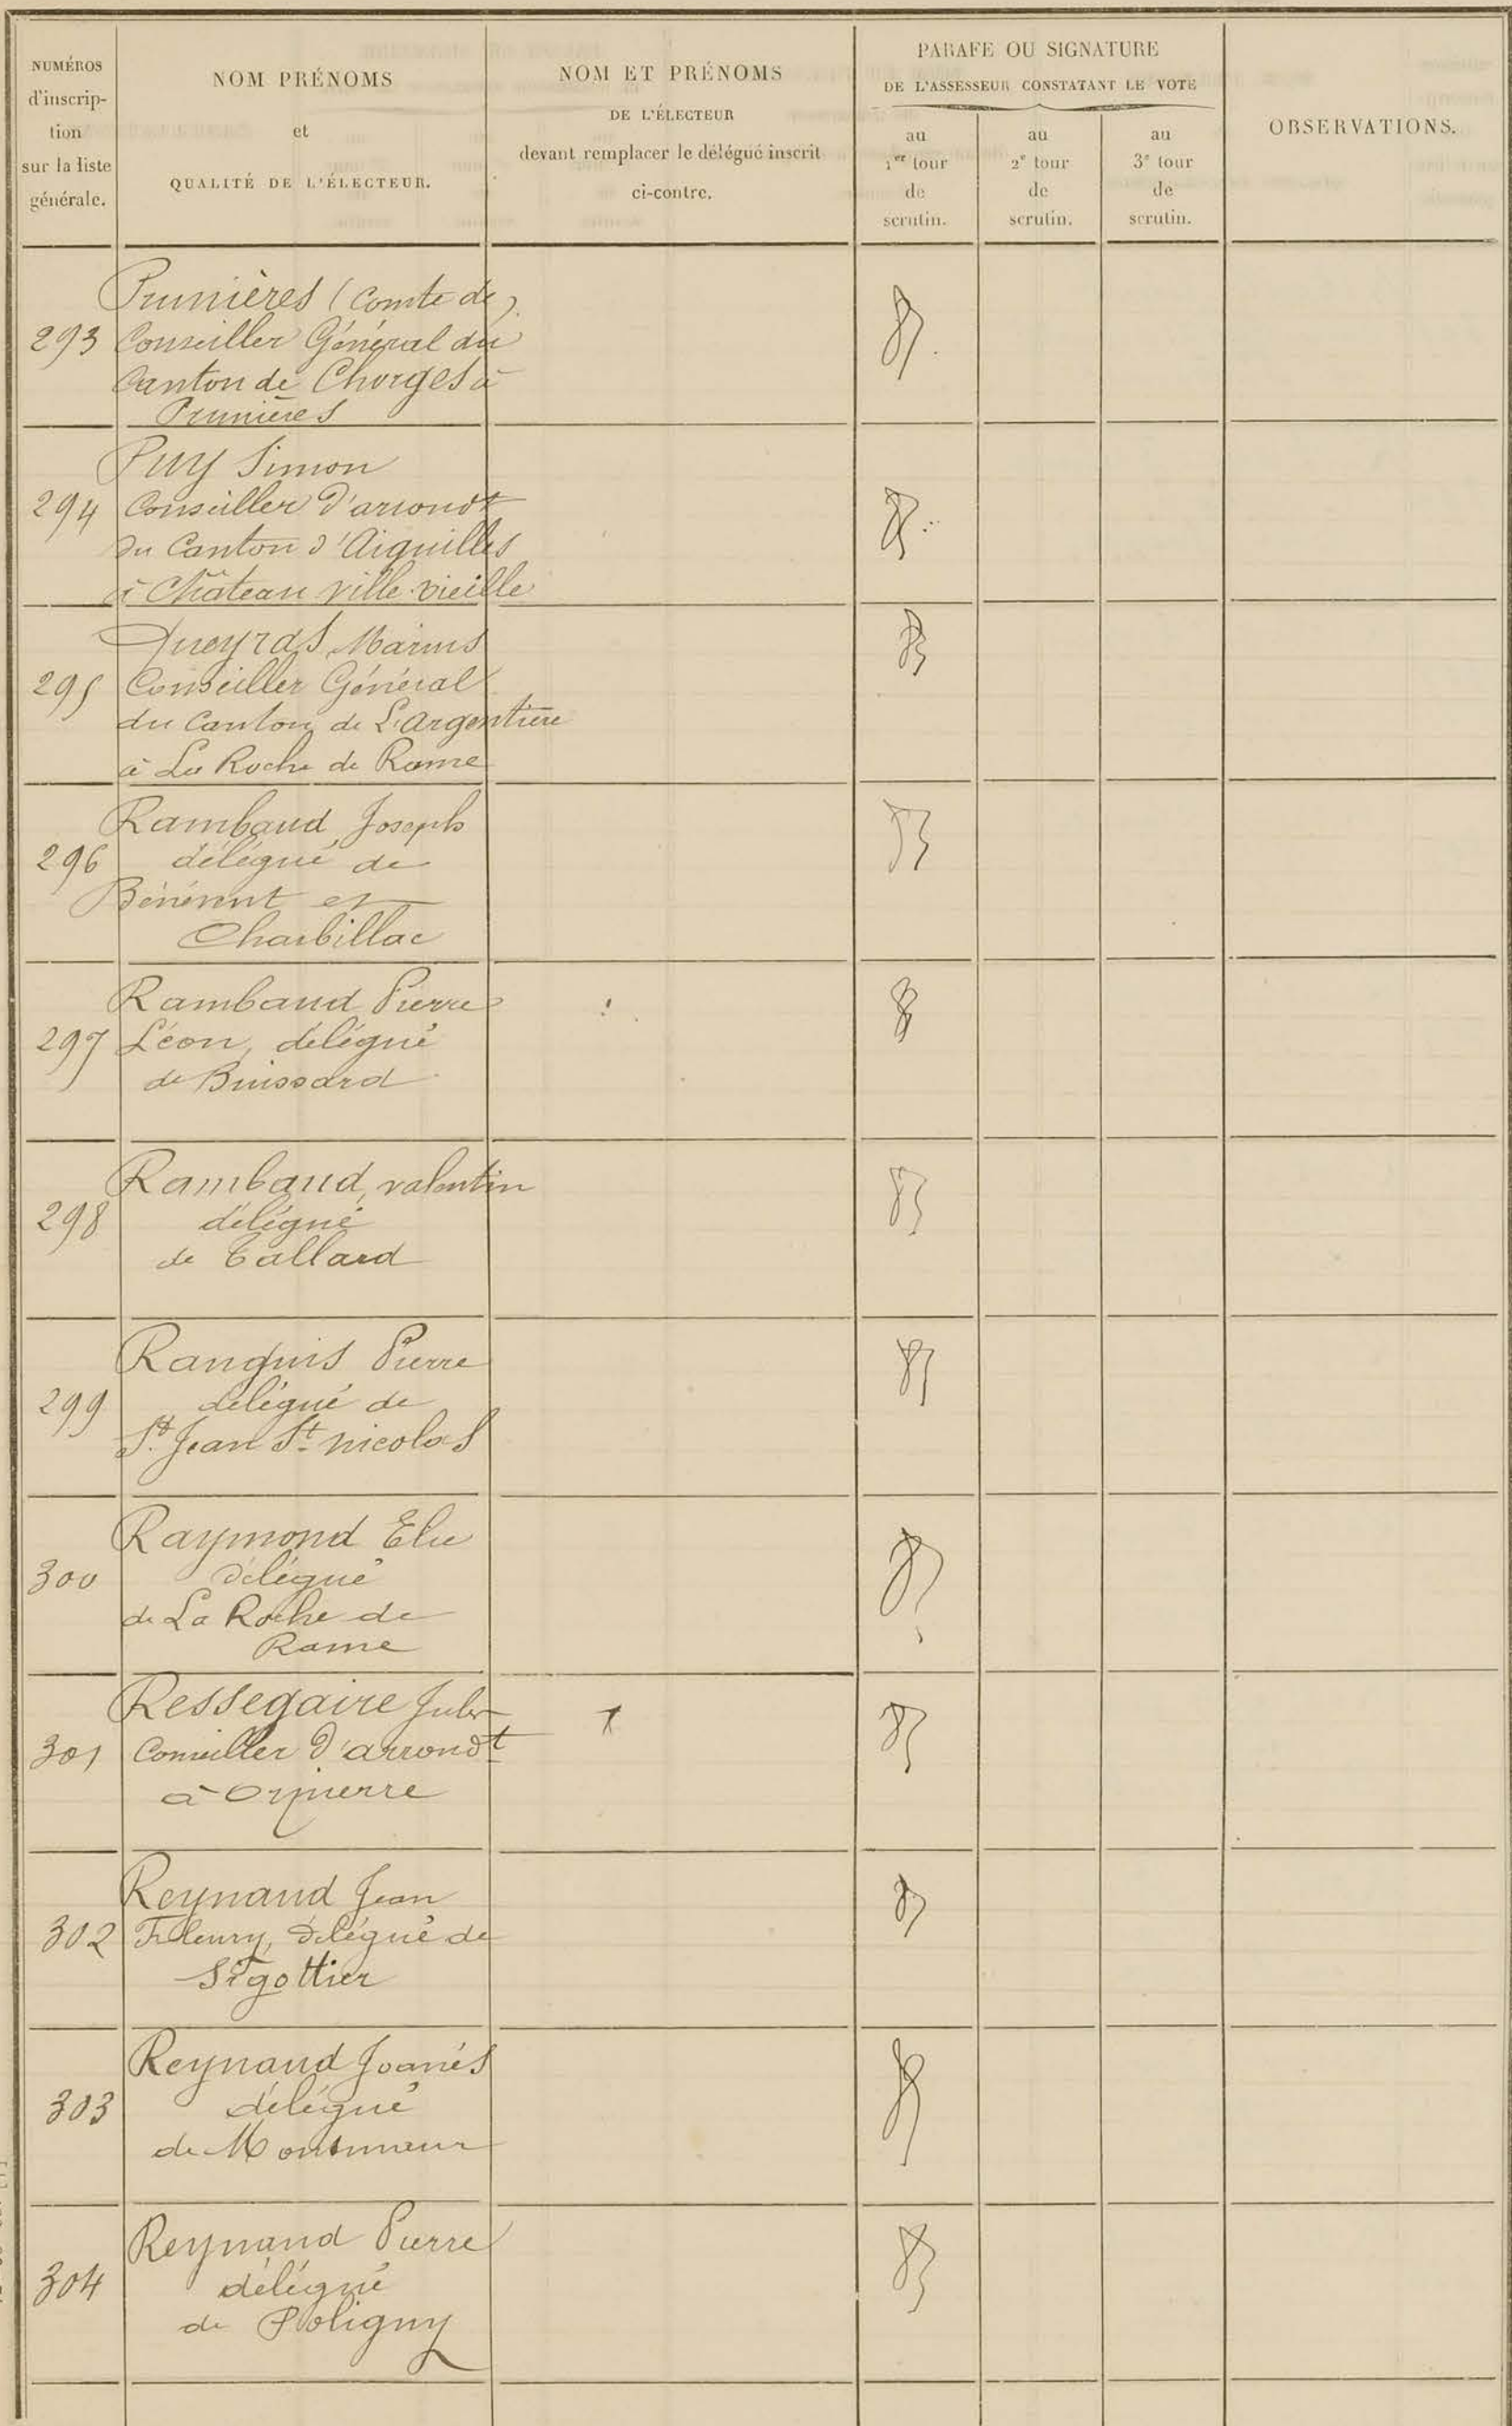 NUMÉROS
d'inscrip-
tion
sur la liste
générale.
NOM PRÉNOMS
et
QUALITÉ DE L'ÉLECTEUR.
NOM ET PRÉNOMS
DE L'ÉLECTEUR
devant remplacer le délégué inscrit
ci-contre.
PARAFE OU SIGNATURE
DE L'ASSESSEUR CONSTATANT LE VOTE
au
1er tour
de
scrutin.
au
2e tour
de
scrutin.
au
3e tour
de
scrutin.
OBSERVATIONS.
Prunières (Comte de)
293 Conseiller Général du
Canton de Chorges à
Prunières
Puy Simon
294 Conseiller d'arrondt
du Canton d'Aiguilles
à Château ville-vieille
Queyras Marius
295 Conseiller Général
du Canton de L'Argentière
à La Roche de Rame
Rambaud Joseph
296 délégué de
Bénévent et
Charbillac
Rambaud Pierre
297 Léon, délégué
de Buissard
Rambaud, valentin
298 délégué
de Tallard
Ranguis Pierre
299 délégué de
St Jean St nicolas
Raymond Elie
300 délégué
de La Roche de
Rame
Ressegaire Jules
301 Conseiller d'arrondt
à Orpierre
Reynaud Jean
302 Fleury, délégué de
Sigottier
Reynaud Joanès
303 délégué
de Montmaur
Reynaud Pierre
304 délégué
de Poligny